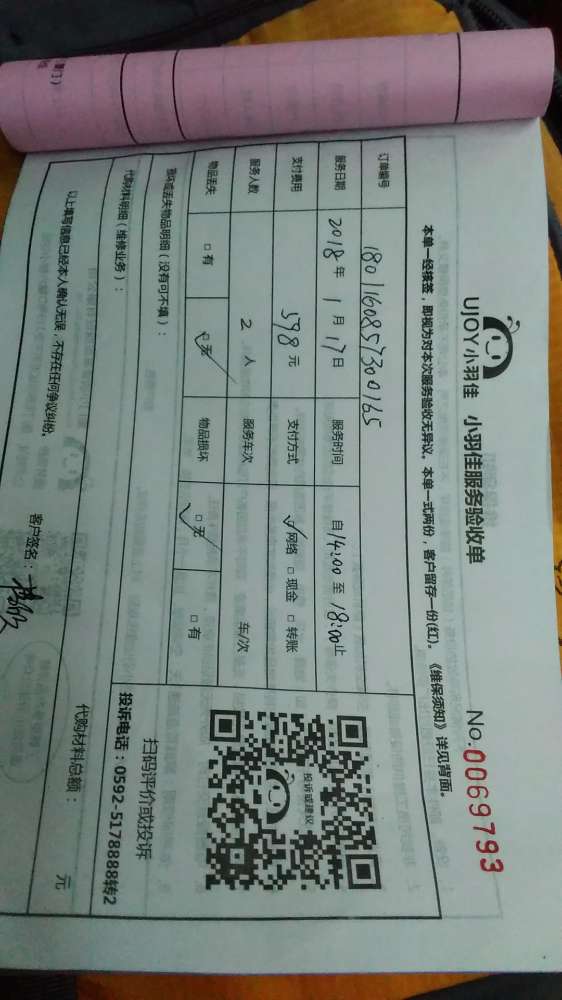 UJOY小羽佳 小羽佳服务验收单
No.0069793
本单一经接签，即视为对本次服务验收无异议。本单一式两份，客户留存一份(红)。《维保须知》详见背面。
订单编号 1801160857300165
服务日期 2018年1月17日 服务时间 自14:00至18:00止
支付费用 598元 支付方式 ☑网络 □现金 □转账
服务人数 2人 服务车次 车/次
物品丢失 □有 ☑无 物品损坏 ☑无 □有
损坏或丢失物品明细（没有可不填）：
代购材料明细（维修业务）：
代购材料总额： 元
以上填写信息已经本人确认无误，不存在任何争议纠纷。
客户签名：
投诉或建议
扫码评价或投诉
投诉电话：0592-5178888转2